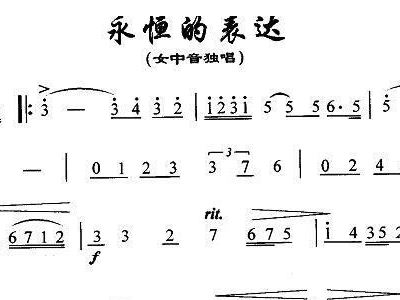 永恒的表达
(女中音独唱)
3 — 3 4 3 2 | 1 2 3 1 5 5 5 6· 5 | 5
— | 0 1 2 3 3 7 6 | 0 2 4
3
rit.
6 7 1 2 | 3 3 2 7 6 7 5 | 1 4 3 5 2
f